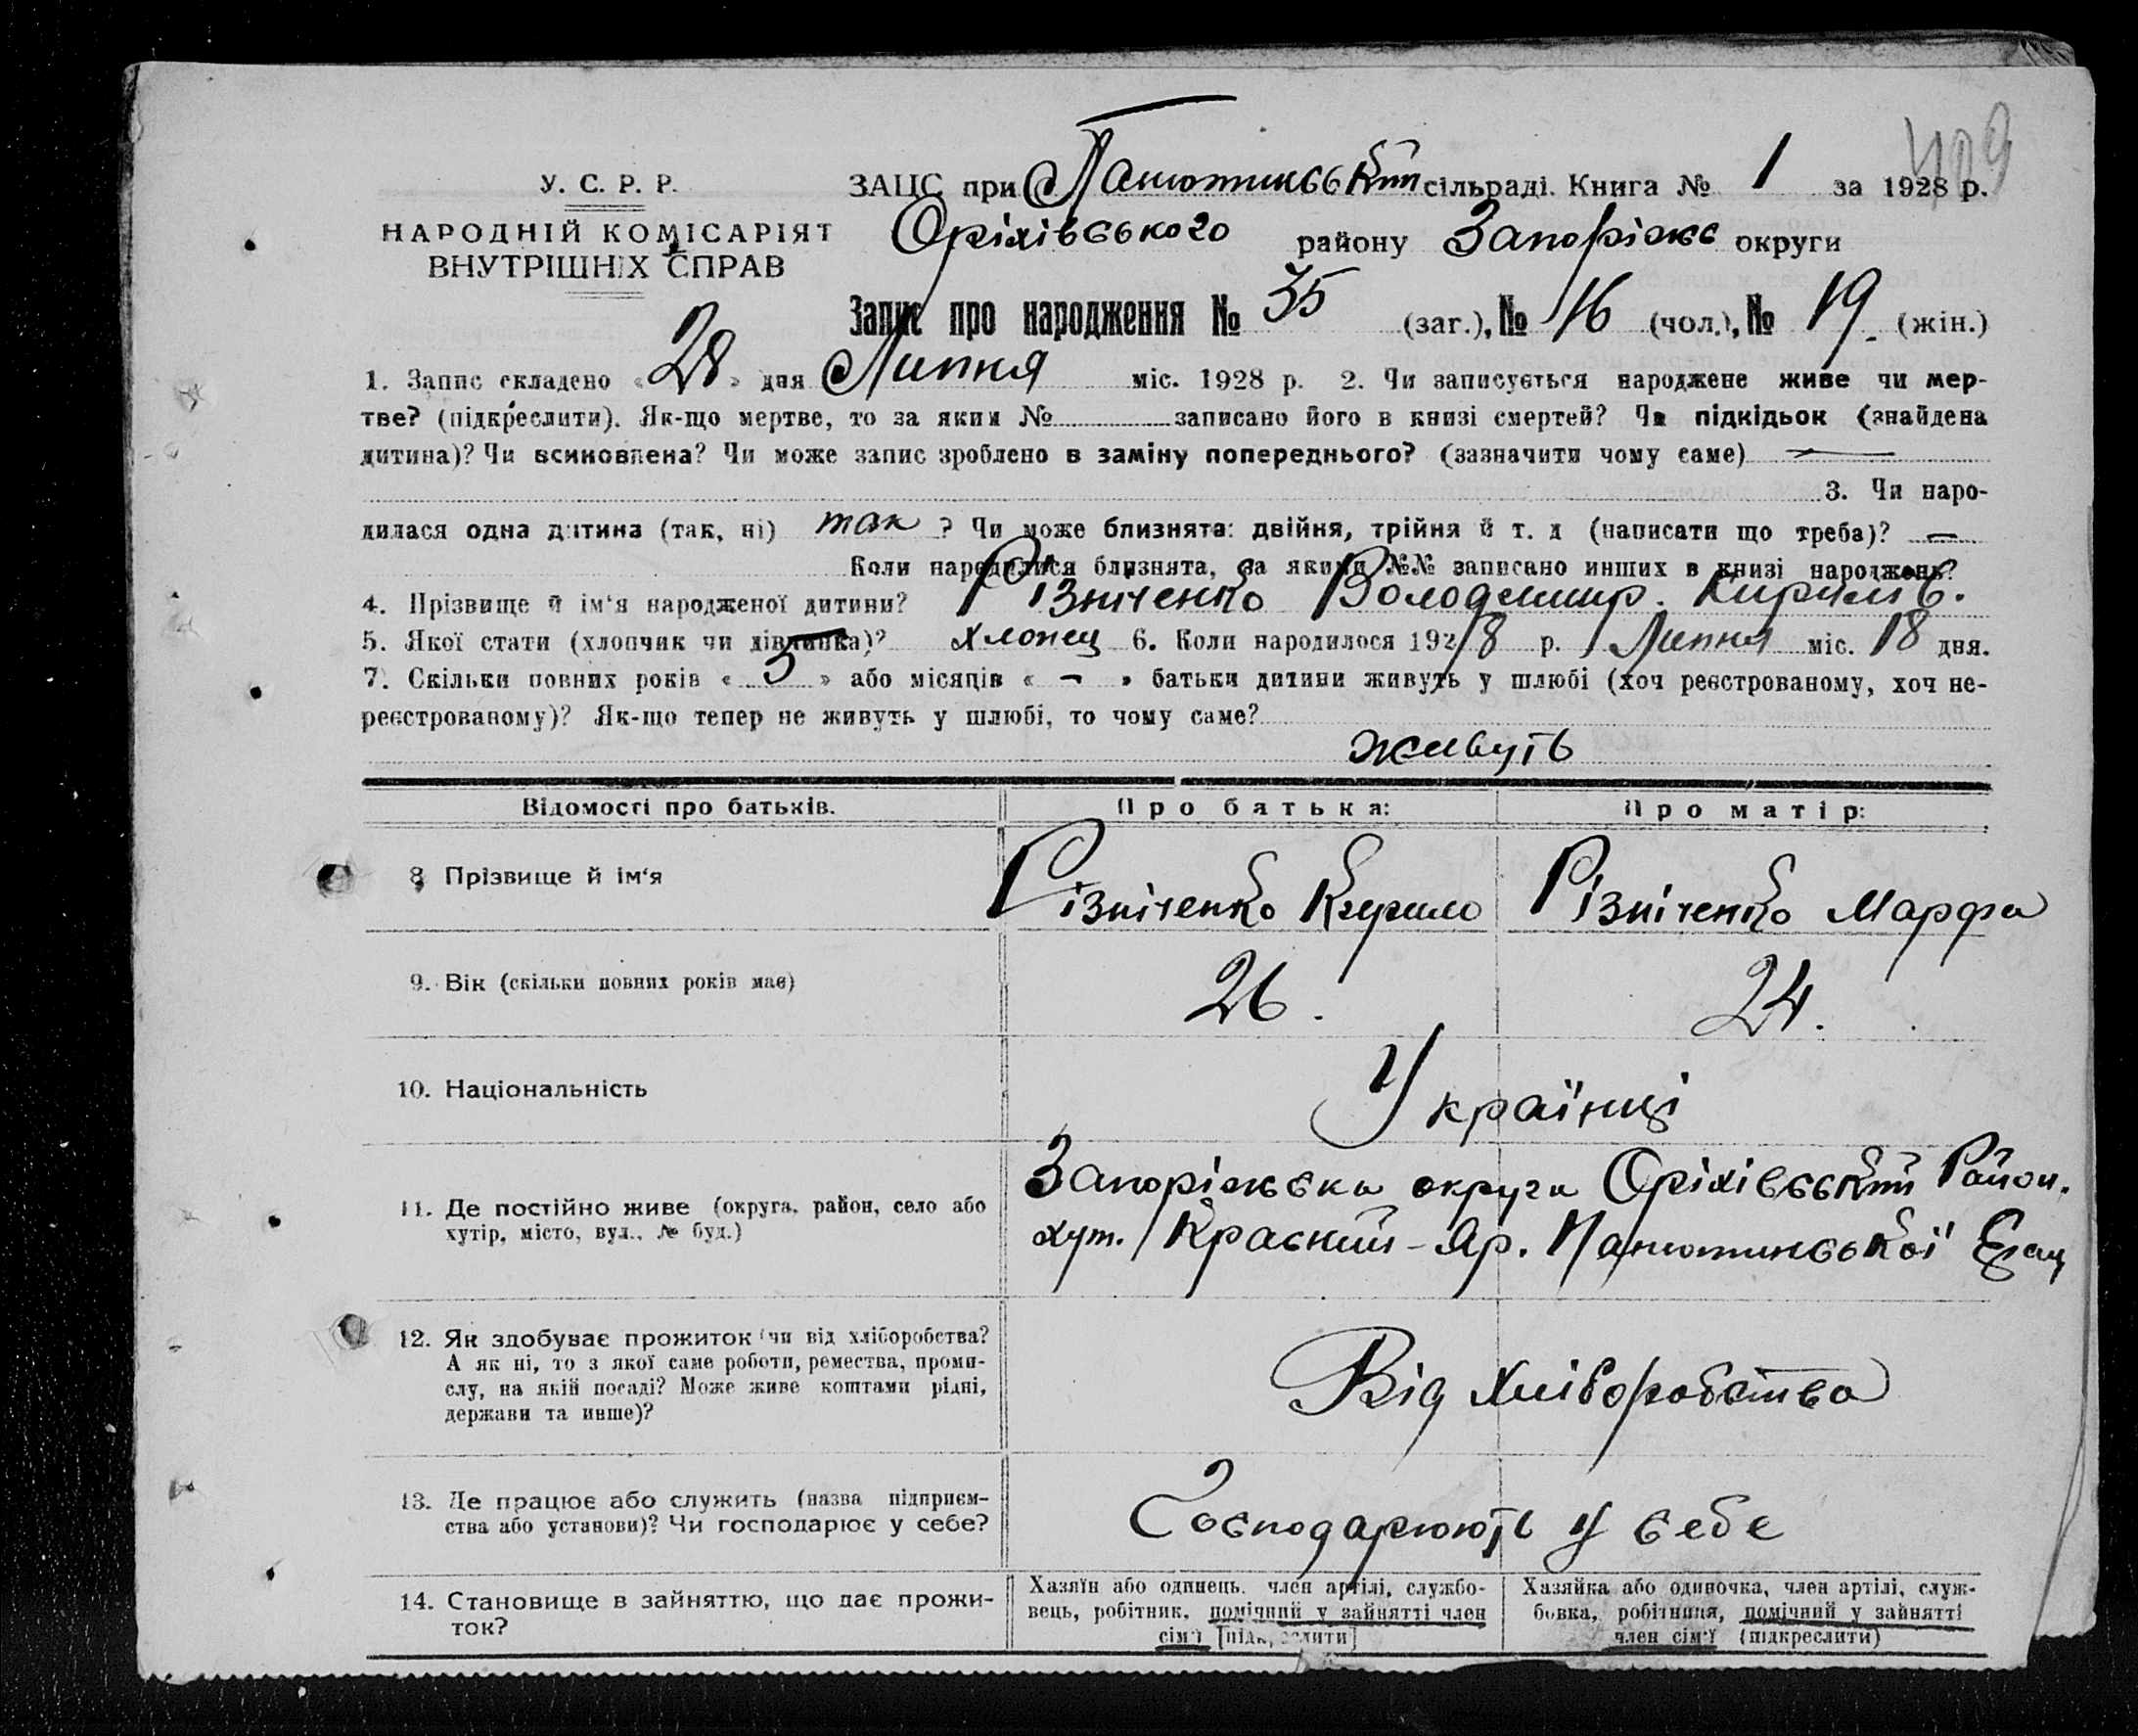 409
У. С. Р. Р.
НАРОДНІЙ КОМІСАРІЯТ
ВНУТРІШНІХ СПРАВ
ЗАЦС при Панютинській сільраді. Книга № 1 за 1928 р.
Оріхівського району Запоріжс округи
Запис про народження № 35 (заг.), № 16 (чол.), № 19. (жін.)
1. Запис складено «28» дня Липня міс. 1928 р. 2. Чи записується народжене живе чи мер-
тве? (підкреслити). Як-що мертве, то за яким № записано його в книзі смертей? Чи підкідьок (знайдена
дитина)? Чи всиновлена? Чи може запис зроблено в заміну попереднього? (зазначити чому саме) —
3. Чи наро-
дилася одна дитина (так, ні) так ? Чи може близнята: двійня, трійня й т. д (написати що треба)? —
Коли народилися близнята, за якими №№ записано инших в книзі народжень?
4. Прізвище й ім'я народженої дитини? Різніченко Володимир. Кирилів.
5. Якої стати (хлопчик чи дівчинка)? хлопец 6. Коли народилося 1928 р. Липня міс. 18 дня.
7. Скільки повних років «5» або місяців «-» батьки дитини живуть у шлюбі (хоч реєстрованому, хоч не-
реєстрованому)? Як-що тепер не живуть у шлюбі, то чому саме?
живуть
Відомості про батьків. Про батька: Про матір:
8 Прізвище й ім'я Різніченко Кирило Різніченко Марфа
9. Вік (скільки повних років має) 26. 24.
10. Національність Українці
11. Де постійно живе (округа, район, село або
хутір, місто, вул., № буд.)
Запоріжська округа Оріхівський Район.
хут. Красний-Яр. Панютинської
12. Як здобуває прожиток (чи від хліборобства?
А як ні, то з якої саме роботи, ремества, проми-
слу, на якій посаді? Може живе коштами рідні,
держави та инше)?
Від хліборобства
13. Де працює або служить (назва підприєм-
ства або установи)? Чи господарює у себе?
Господарюють у себе
14. Становище в зайняттю, що дає прожи-
ток?
Хазяїн або одинець, член артілі, службо-
вець, робітник, помічний у зайнятті член
сім'ї [підкреслити]
Хазяйка або одиночка, член артілі, служ-
бовка, робітниця, помічний у зайнятті
член сім'ї (підкреслити)